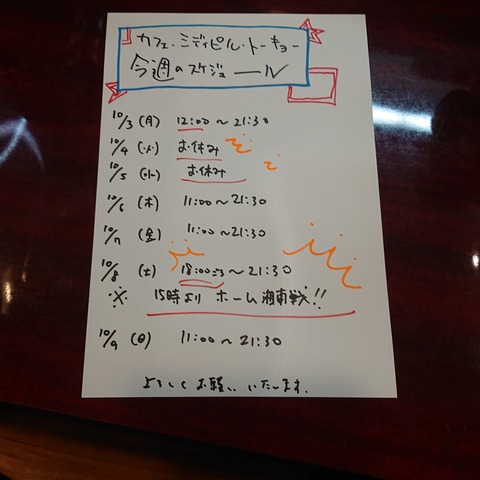 カフェ・ミディピル・トーキョー
今週のスケジュール
10/3 (月) 12:00〜21:30
10/4 (火) お休み
10/5 (水) お休み
10/6 (木) 11:00〜21:30
10/7 (金) 11:00〜21:30
10/8 (土) 18:00ごろ〜21:30
※ 15時より ホーム 湘南戦!!
10/9 (日) 11:00〜21:30
よろしくお願いいたします.